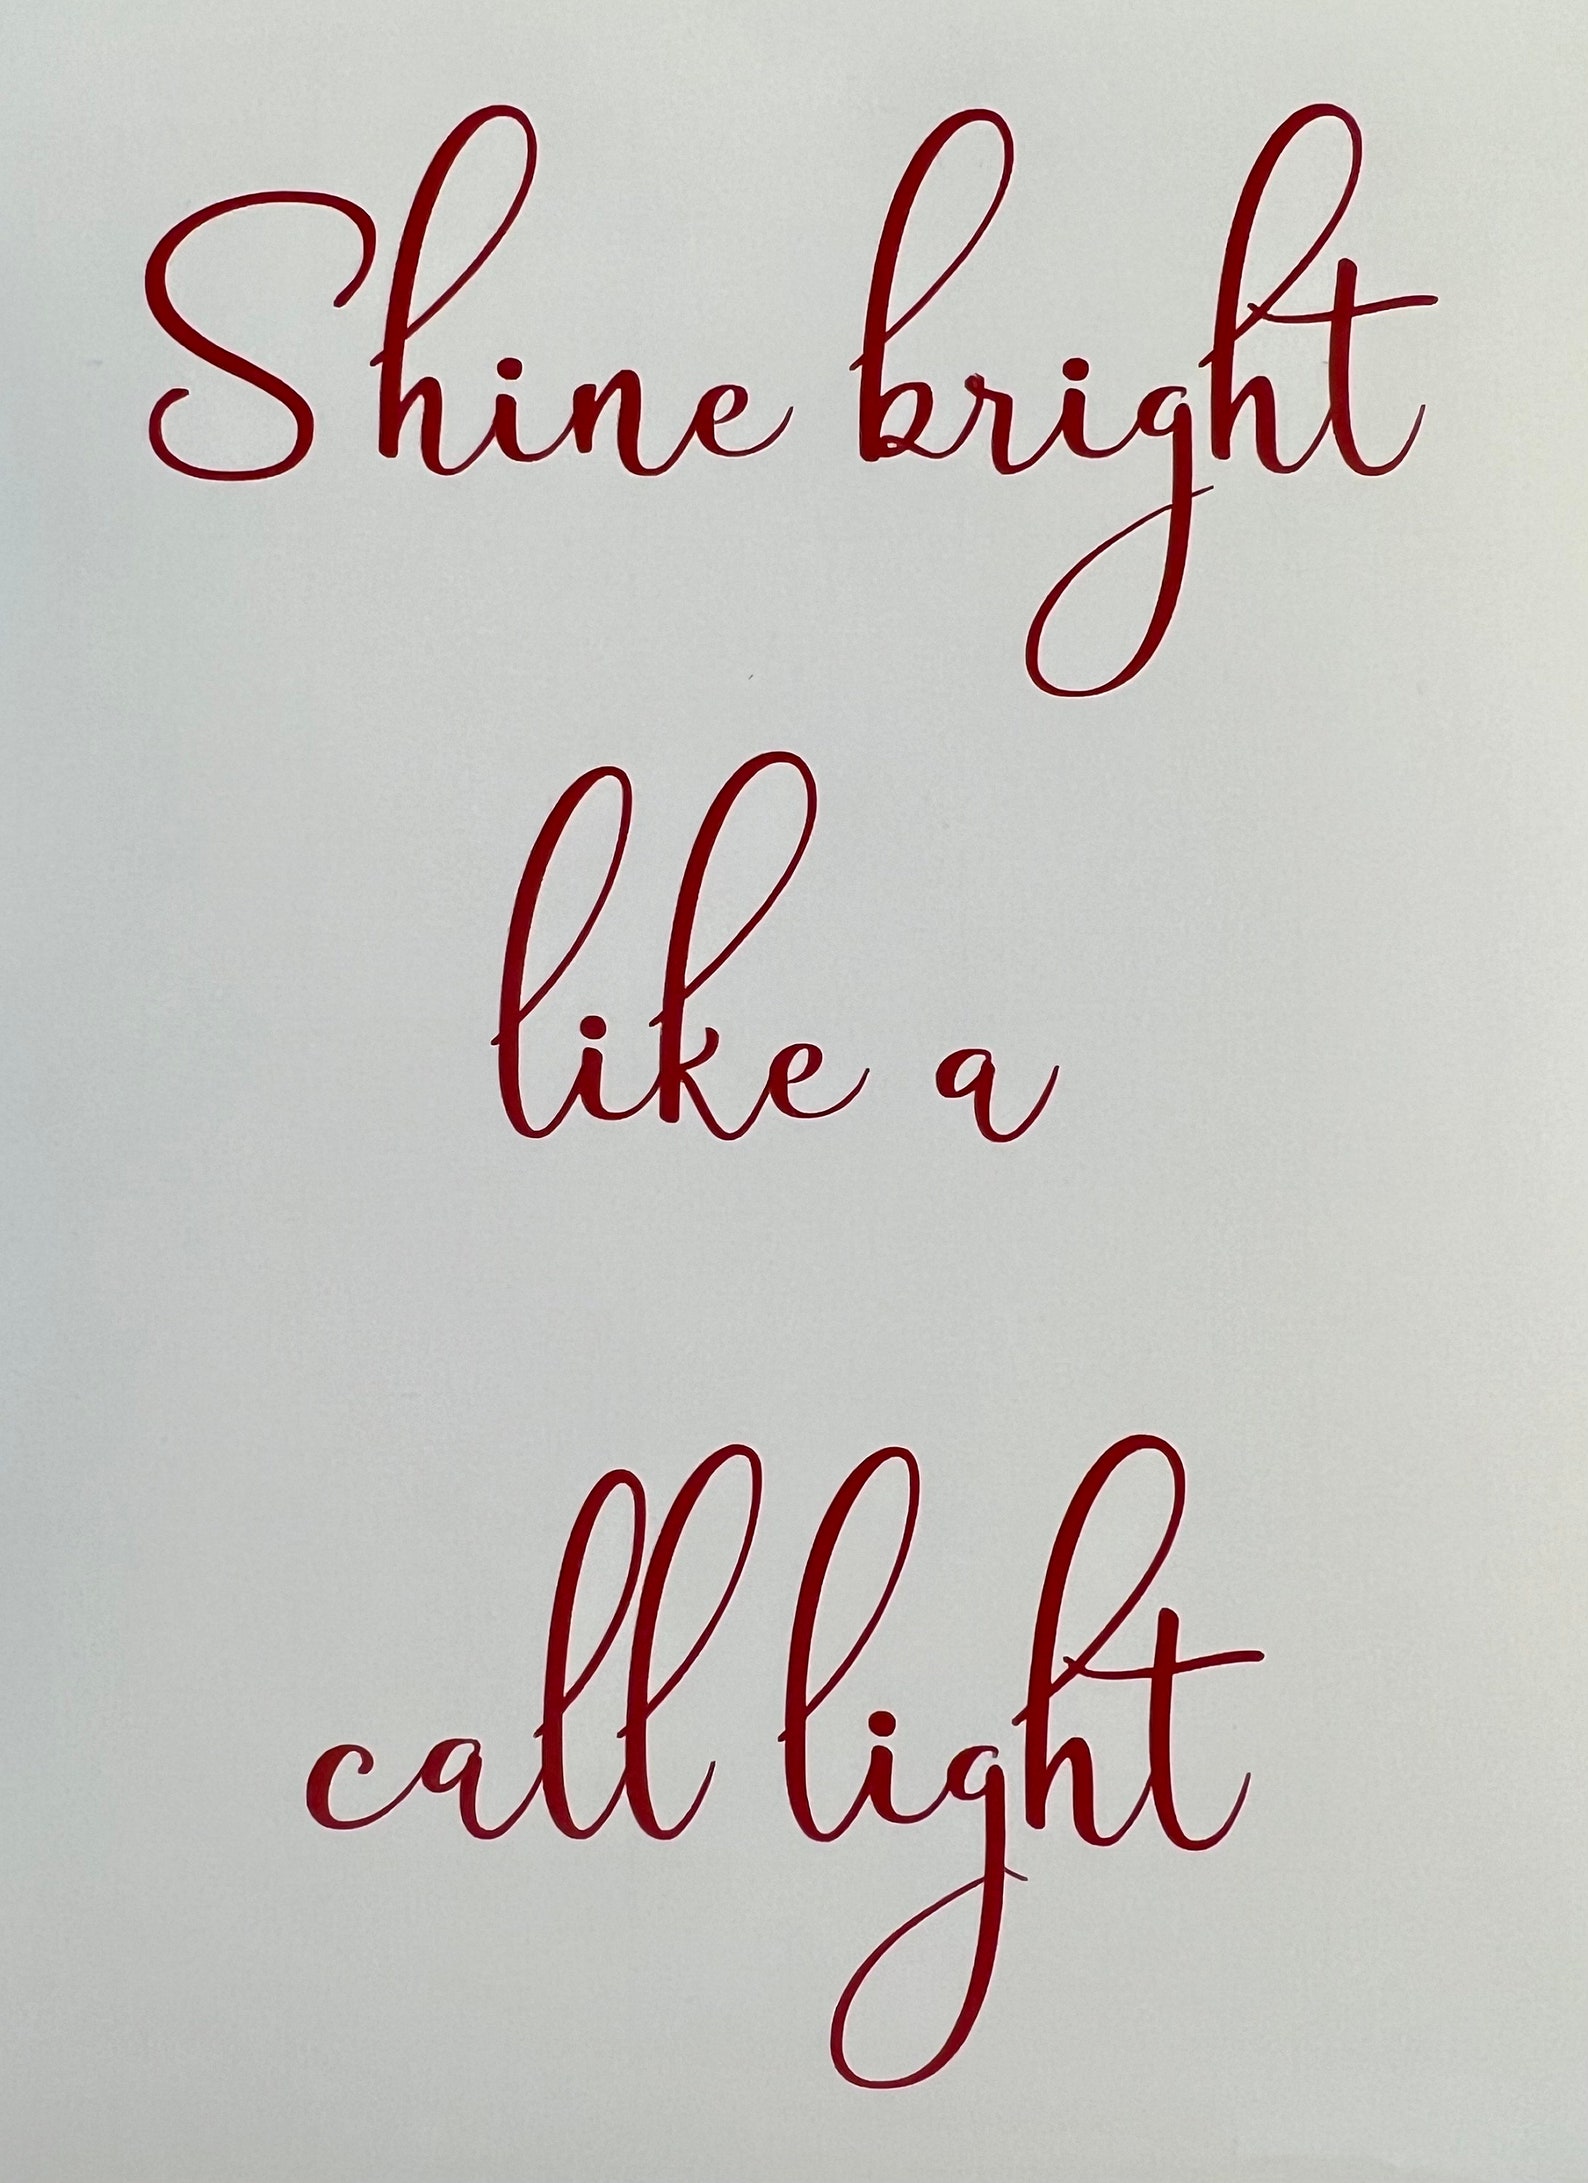 Shine bright
like a
call light